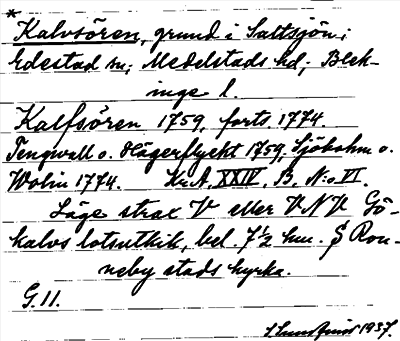 *
Kalvsören, grund i Saltsjön;
Edestad sn; Medelstads hd; Blek-
inge l.
Kalfsören 1759, forts. 1774.
Tengwall o. Hägerflycht 1759, Sjöbohm o.
Wolin 1774. Kr.A. XXIV, B, N:o VI.
Läge strax V eller VNV Gö-
kalvs lotsutkik, bel. 7½ km. S Ron-
neby stads kyrka.
G. 11.
1937.